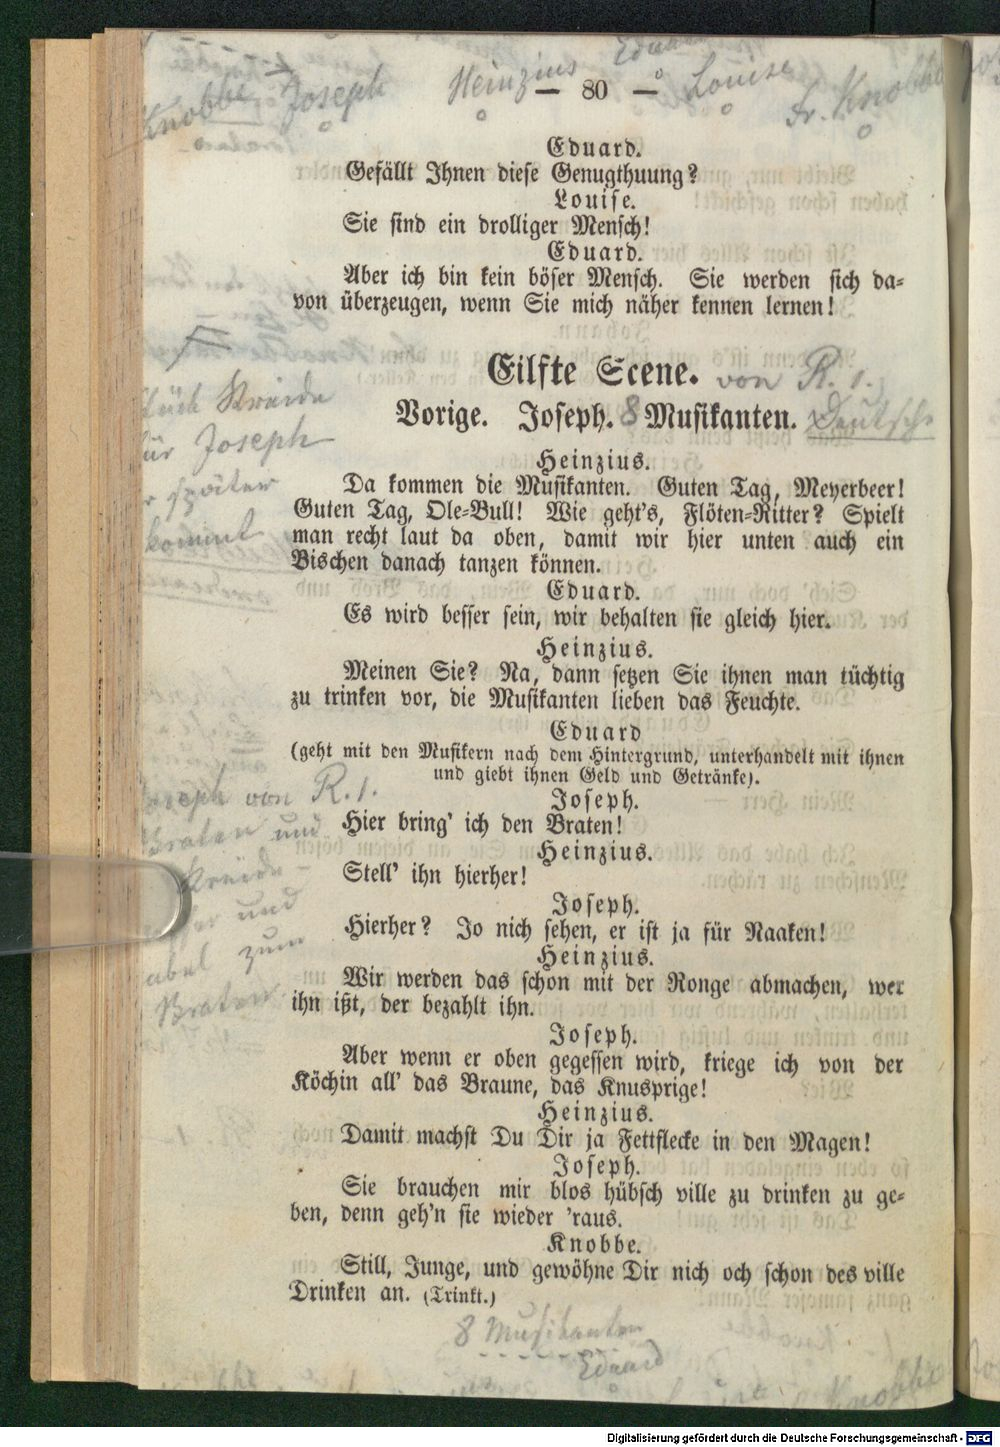 Knobbe Joseph Heinzius Eduard Louise Fr. Knobbe
— 80 —
Eduard.
Gefällt Ihnen diese Genugthuung?
Louise.
Sie sind ein drolliger Mensch!
Eduard.
Aber ich bin kein böser Mensch. Sie werden sich da-
von überzeugen, wenn Sie mich näher kennen lernen!
Eilfte Scene. von R. 1.
Vorige. Joseph. 8 Musikanten. Deutsche
Kreide
für Joseph
später
kommt
Heinzius.
Da kommen die Musikanten. Guten Tag, Meyerbeer!
Guten Tag, Ole-Bull! Wie geht's, Flöten-Ritter? Spielt
man recht laut da oben, damit wir hier unten auch ein
Bischen danach tanzen können.
Eduard.
Es wird besser sein, wir behalten sie gleich hier.
Heinzius.
Meinen Sie? Na, dann setzen Sie ihnen man tüchtig
zu trinken vor, die Musikanten lieben das Feuchte.
Eduard
(geht mit den Musikern nach dem Hintergrund, unterhandelt mit ihnen
und giebt ihnen Geld und Getränke).
Joseph von R. 1.
Braten und
Kreide –
und
zum
Braten
Joseph.
Hier bring' ich den Braten!
Heinzius.
Stell' ihn hierher!
Joseph.
Hierher? Jo nich sehen, er ist ja für Naaken!
Heinzius.
Wir werden das schon mit der Ronge abmachen, wer
ihn ißt, der bezahlt ihn.
Joseph.
Aber wenn er oben gegessen wird, kriege ich von der
Köchin all' das Braune, das Knusprige!
Heinzius.
Damit machst Du Dir ja Fettflecke in den Magen!
Joseph.
Sie brauchen mir blos hübsch ville zu drinken zu ge-
ben, denn geh'n sie wieder 'raus.
Knobbe.
Still, Junge, und gewöhne Dir nich och schon des ville
Drinken an. (Trinkt.)
8 Musikanten
Eduard
Knobbe
Digitalisierung gefördert durch die Deutsche Forschungsgemeinschaft - DFG